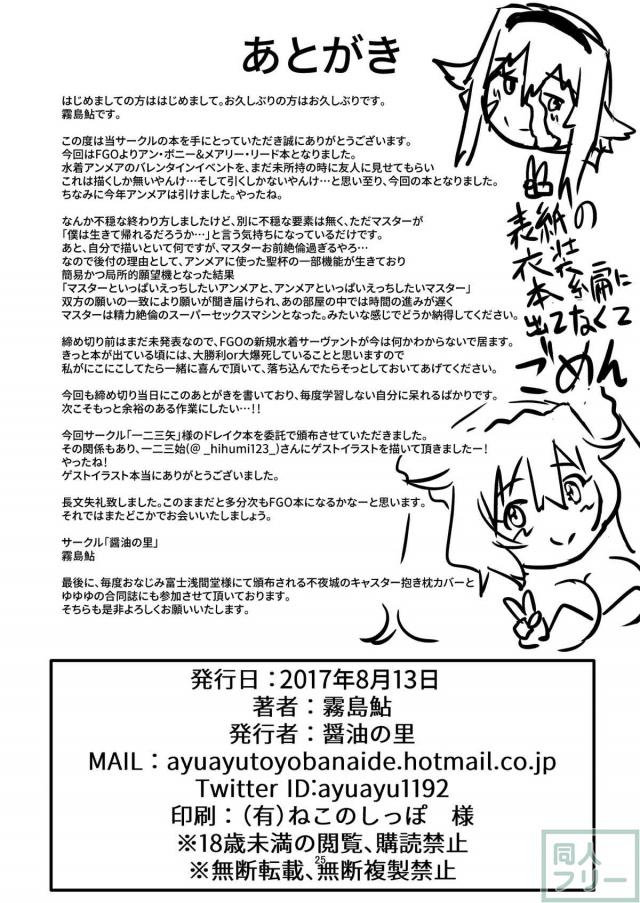 あとがき
はじめましての方ははじめまして。お久しぶりの方はお久しぶりです。
霧島鮎です。
この度は当サークルの本を手にとっていただき誠にありがとうございます。
今回はFGOよりアン・ボニー&メアリー・リード本となりました。
水着アンメアのバレンタインイベントを、まだ未所持の時に友人に見せてもらい
これは描くしか無いやんけ…そして引くしかないやんけ…と思い至り、今回の本となりました。
ちなみに今年アンメアは引けました。やったね。
なんか不穏な終わり方しましたけど、別に不穏な要素は無く、ただマスターが
「僕は生きて帰れるだろうか…」と言う気持ちになっているだけです。
あと、自分で描いといて何ですが、マスターお前絶倫過ぎるやろ…
なので後付の理由として、アンメアに使った聖杯の一部機能が生きており
簡易かつ局所的願望機となった結果
「マスターといっぱいえっちしたいアンメアと、アンメアといっぱいえっちしたいマスター」
双方の願いの一致により願いが聞き届けられ、あの部屋の中では時間の進みが遅く
マスターは精力絶倫のスーパーセックスマシンとなった。みたいな感じでどうか納得してください。
締め切り前はまだ未発表なので、FGOの新規水着サーヴァントが今は何かわからないで居ます。
きっと本が出ている頃には、大勝利or大爆死していることと思いますので
私がにこにこしてたら一緒に喜んで頂いて、落ち込んでたらそっとしておいてあげてください。
今回も締め切り当日にこのあとがきを書いており、毎度学習しない自分に呆れるばかりです。
次こそもっと余裕のある作業にしたい…!!
今回サークル「一二三矢」様のドレイク本を委託で頒布させていただきました。
その関係もあり、一二三始(@_hihumi123_)さんにゲストイラストを描いて頂きましたー!
やったね!
ゲストイラスト本当にありがとうございました。
長文失礼致しました。このままだと多分次もFGO本になるかなーと思います。
それではまたどこかでお会いいたしましょう。
サークル「醤油の里」
霧島鮎
最後に、毎度おなじみ富士浅間堂様にて頒布される不夜城のキャスター抱き枕カバーと
ゆゆゆの合同誌にも参加させて頂いております。
そちらも是非よろしくお願いいたします。
表紙の
衣装
本編に
出てなくて
ごめん
発行日：2017年8月13日
著者：霧島鮎
発行者：醤油の里
MAIL：ayuayutoyobanaide.hotmail.co.jp
Twitter ID:ayuayu1192
印刷：（有）ねこのしっぽ 様
※18歳未満の閲覧、購読禁止
※無断転載、無断複製禁止
25
同人
フリー